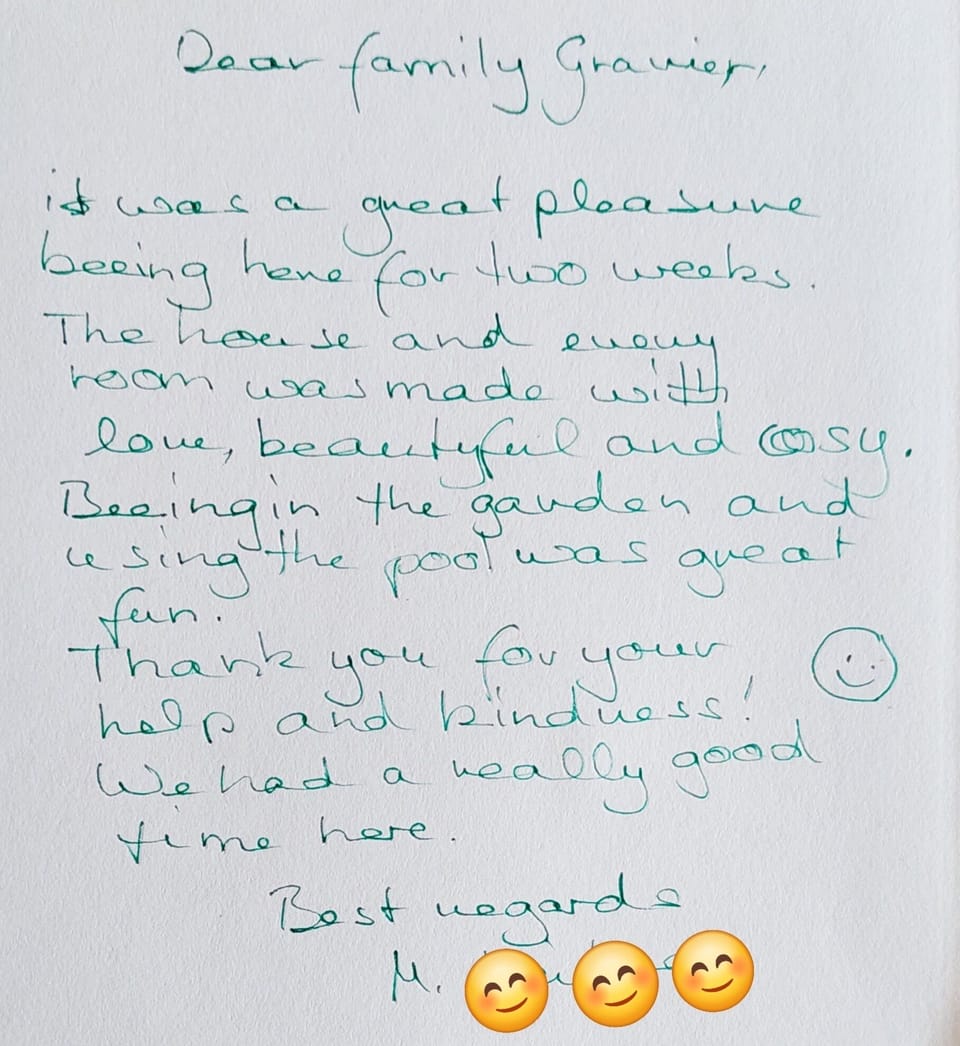 Dear family Gravier,
it was a great pleasure
beeing here for two weeks.
The house and every
room was made with
love, beautyful and cosy.
Beeing in the garden and
using the pool was great
fun.
Thank you for your
help and kindness!
We had a really good
time here.
Best regards
M.